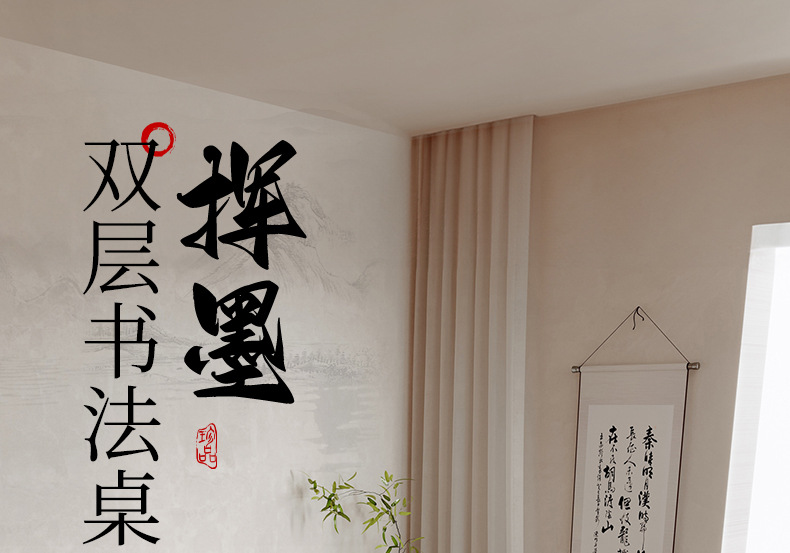 挥墨
双层书法桌
珍品
秦时明月汉时
长征人未还
但使龙
在不度
胡马度阴山